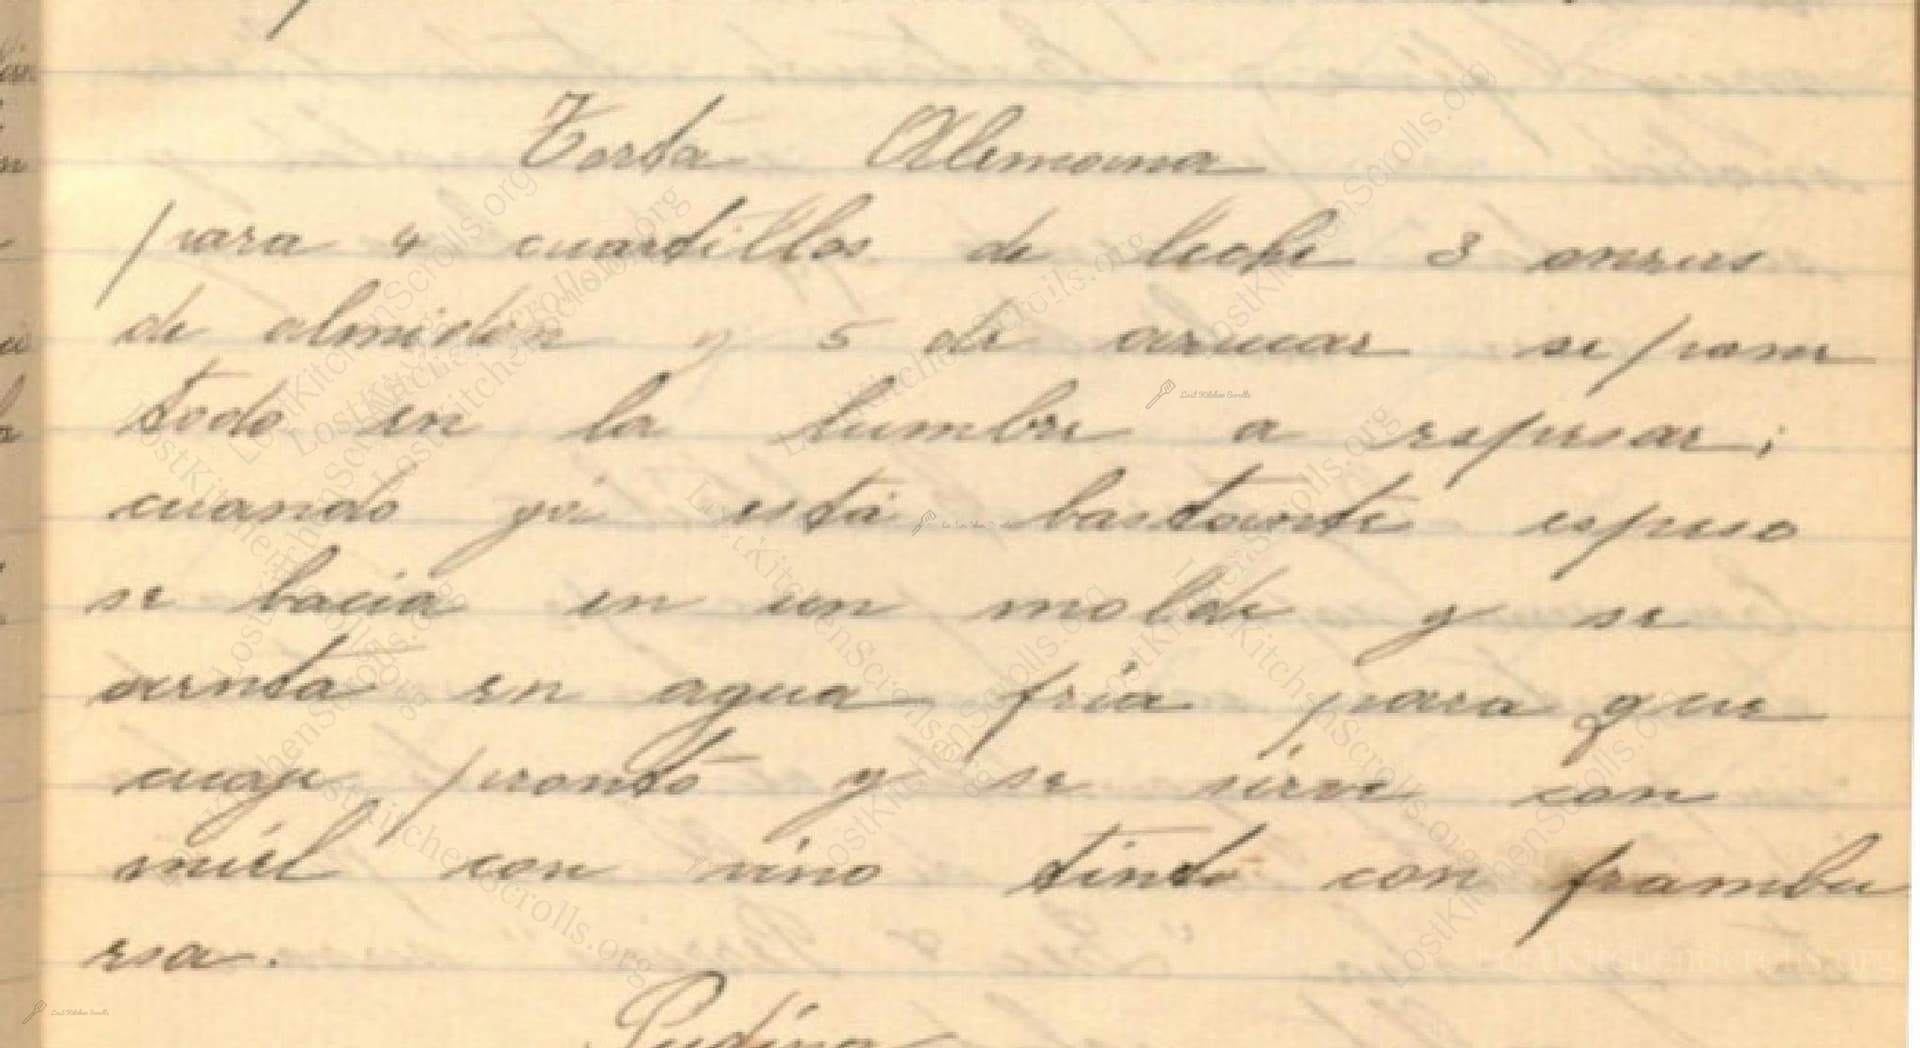 Torta Alemana
para 4 cuartillos de leche 3 onzas
de almidon y 5 de azucar se pone
todo en la lumbre a espesar;
cuando ya está bastante espeso
se bacia en un molde y se
avienta en agua fria para que
cuaje pronto y se sirve con
miel con vino tinto con frambu
esa.
Puding